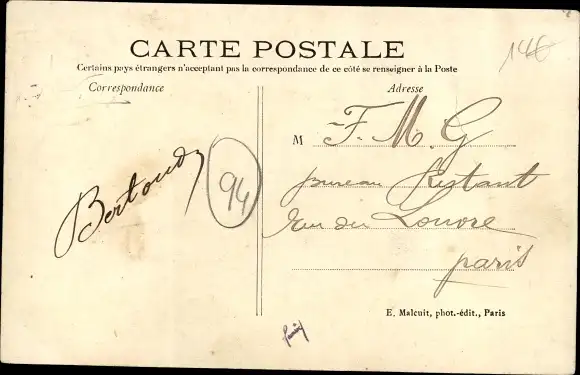 146
CARTE POSTALE
Certains pays étrangers n'acceptant pas la correspondance de ce côté se renseigner à la Poste
Correspondance
Adresse
Bertoudy
94
M F. M. G
bureau Restant
Rue du Louvre
paris
E. Malcuit, phot.-édit., Paris